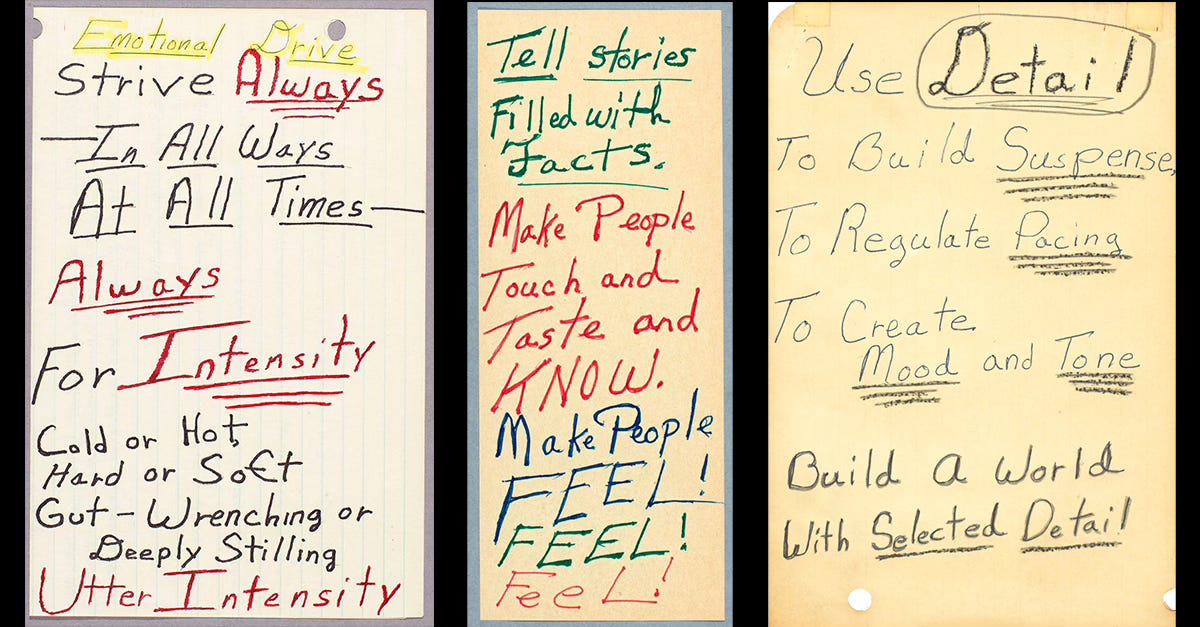 Emotional Drive
Strive Always
—In All Ways
At All Times—
Always
For Intensity
Cold or Hot,
Hard or Soft
Gut-Wrenching or
Deeply Stilling
Utter Intensity
Tell stories
Filled with
Facts.
Make People
Touch and
Taste and
KNOW.
Make People
FEEL!
FEEL!
FeeL!
Use Detail
To Build Suspense,
To Regulate Pacing
To Create
Mood and Tone
Build A World
With Selected Detail